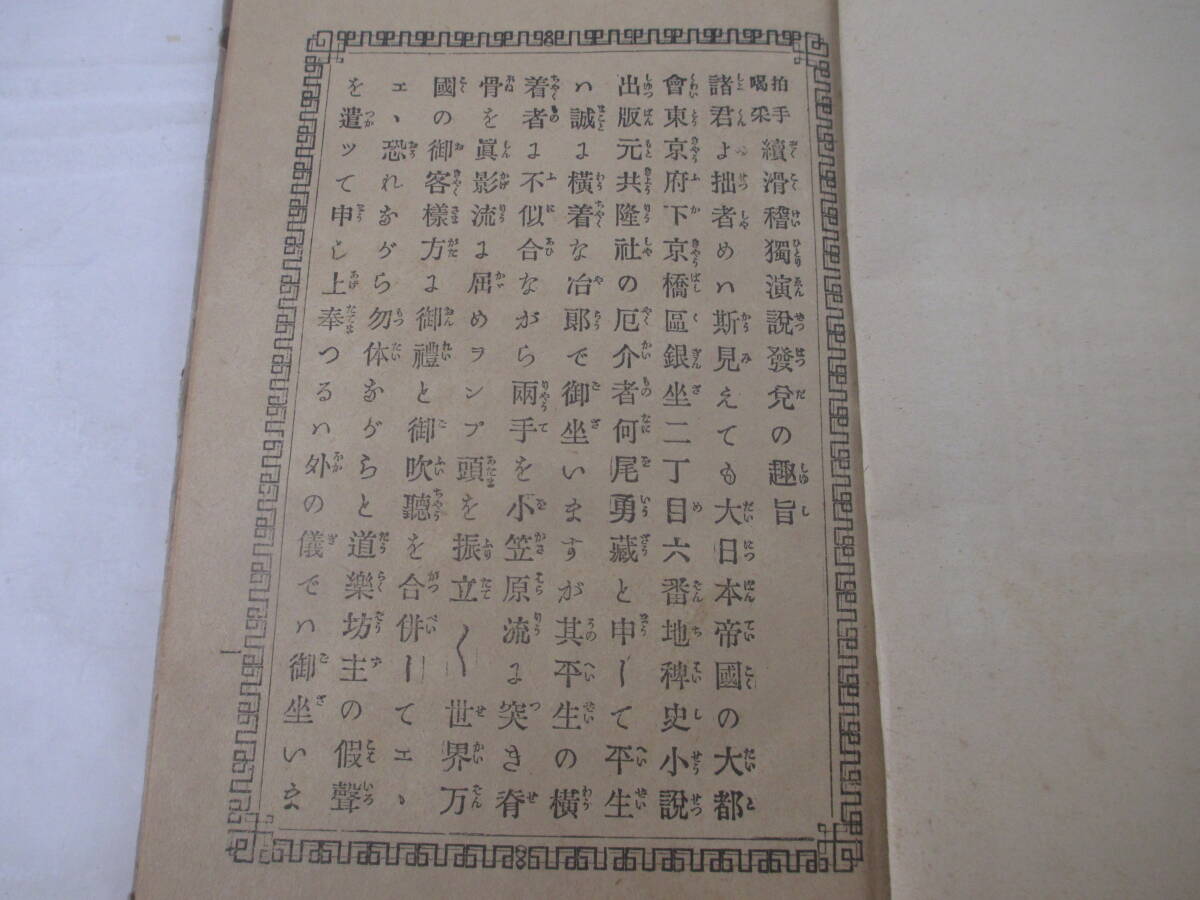 拍手喝采續滑稽獨演說發兌の趣旨
諸君よ拙者めハ斯見えても大日本帝國の大都
會東京府下京橋區銀坐二丁目六番地稗史小說
出版元共隆社の厄介者何尾勇藏と申して平生
ハ誠に橫着な冶郎で御坐いますが其平生の橫
着者に不似合ながら兩手を小笠原流に突き脊
骨を眞影流に屈めヲンプ頭を振立〱世界万
國の御客樣方に御禮と御吹聽を合併してエヽ
エヽ恐れながら勿体ながらと道樂坊主の假聲
を遣ッて申し上奉つるハ外の儀でハ御坐いま